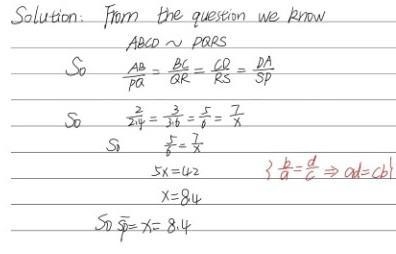 Solution: From the question we know
ABCD ~ PQRS
So AB/PQ = BC/QR = CD/RS = DA/SP
So 2/2.4 = 3/3.6 = 5/6 = 7/x
So 5/6 = 7/x
5x=42 { b/a = d/c ⇒ ad=cb }
x=8.4
So SP = x = 8.4